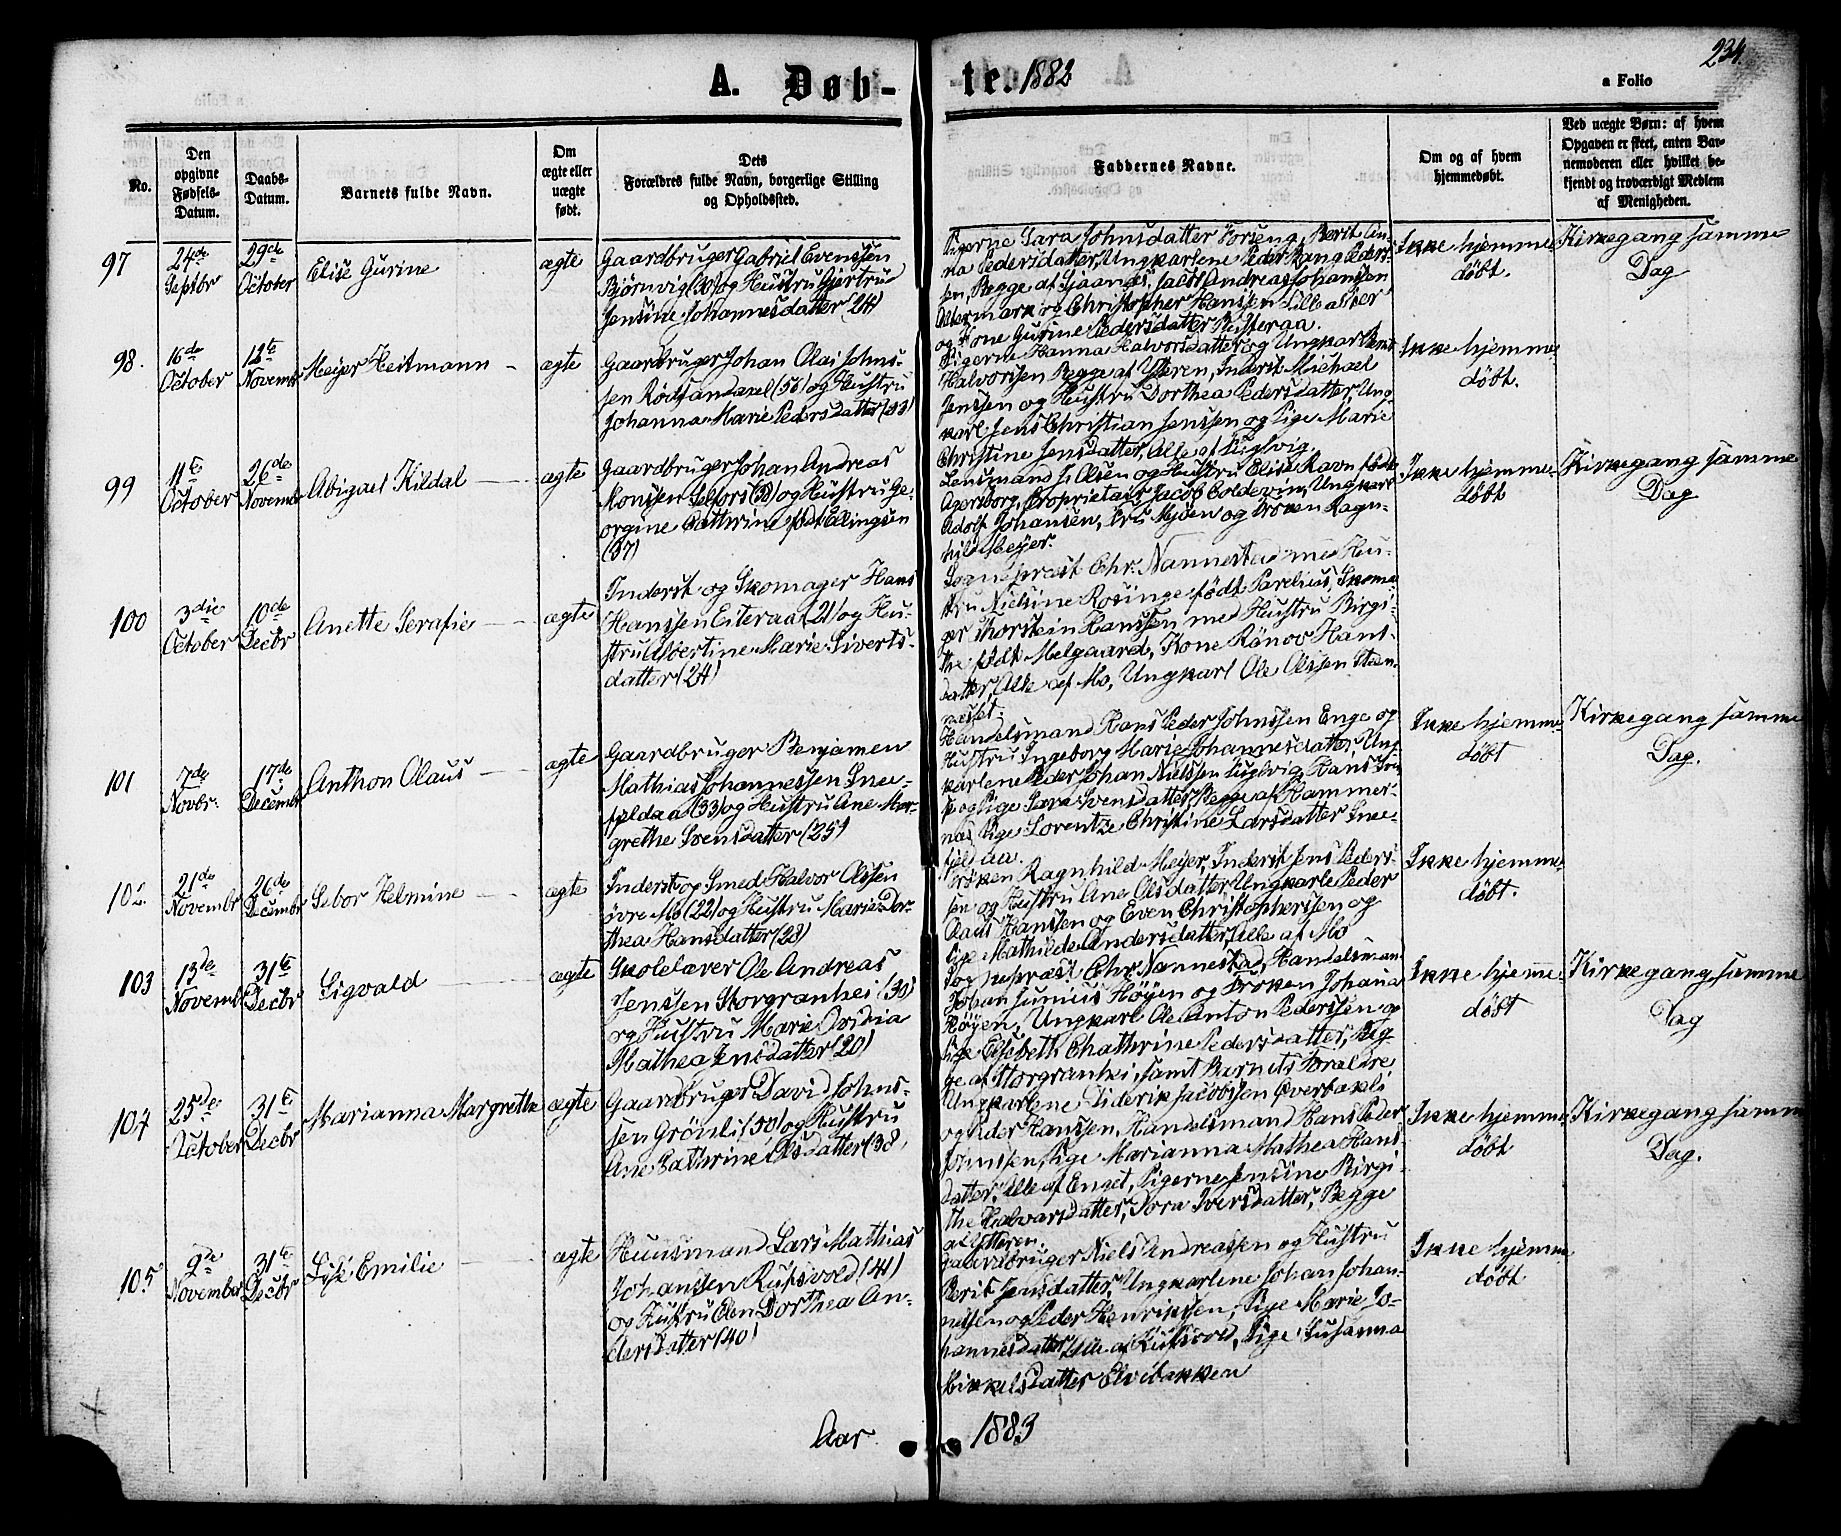 234.
A. Døb- te. 1882
a Folio
No.
Den opgivne Fødsels-Datum.
Daabs-Datum.
Barnets fulde Navn.
Om ægte eller uægte født.
Dets Forældres fulde Navn, borgerlige Stilling og Opholdssted.
Faddernes Navne.
Om og af hvem hjemmedøbt.
Ved uægte Børn: af hvem Opgaven er skeet, enten Barnemoderen eller hvilket bekjendt og troværdigt Medlem af Menigheden.
97
24de Septbr
29de October
Elise Gurine
ægte
Gaardbruger Gabriel Evenssen
Bjørnvig (30) og Hustru Gjertru
Jensine Johannesdatter (24)
Pigerne Sara Johnsdatter Forseng, Berit An-
na Pedersdatter, Ungkarlene Peder Rang Peders-
sen, Begge af Sjaanæs, Jacob Andreas Johanssen
Altermark og Christopher Hanssen Lille alteer
og Kone Gurine Pedersdatter
Ikke hjemme
døbt.
Kirkegang samme
Dag
98.
16de October
12te Novembr
Meyer Heitmann
ægte
Gaardbruger Johan Olai Johns-
sen Rødsandaxel (56) og Hustru
Johanna Marie Pedersdatter (33)
Pigerne Hanna Halvorsdatter og Ungkarl
Halvorsen Begge af Ytteren, Inderst Michael
Jenssen og Hustru Dorthea Pedersdatter, Ung-
karl Jens Christian Jenssen og Pige Marie
Christine Jensdatter, Alle af
Ikke hjemme
døbt.
99
11te October
26de Novembr
Abigael Kildal
ægte
Gaardbruger Johan Andreas
Monsen Selfors og Hustru Ge-
orgine Cathrine født Ellingsen
(37)
Lensmand J. Olsen og Hustru Elise Ravn født
Agersborg, Proprietair Jacob Coldevin, Ungkarl
Adolf Johansen, Fru Mjøen og Frøken Ragn-
hild Meyer.
Ikke hjemme
døbt
Kirkegang samme
Dag
100
3die October
10de Decbr
Anette Serafie
ægte
Inderst og Skomager Hans
Hanssen Eiteraa (21) og Hu-
stru Albertine Marie Siverts-
datter (24)
Sognepræst Chr. Nannestad med Hu-
stru Nielsine Rosinge født Parelius, Skoma-
ger Thorstein Hanssen med Hustru Birgi-
the født Melgaard, Kone Rønov Hans-
datter, Alle af Mo, Ungkarl Ole Olssen Sten-
neset.
101
7de Novbr:
17de Decembr
Anthon Olaus
ægte
Gaardbruger Benjamen
Mathias Johannessen Snee-
fjeldaa (33) og Hustru Ane Mar-
grethe Svensdatter (25)
Handelsmand Hans Peder Johnssen Enge og
Hustru Ingeborg Marie Johannesdatter, Ung-
karlene Peder Johan Nielssen
og Pige Sara Svensdatter, Begge af Hammer-
næs, Pige Lorentze Christine Larsdatter Snee-
fjeldaa.
Ikke hjemme
døbt
Kirkegang samme
Dag.
102.
21de Novembr
26de Decembr
Sebor Helmine
ægte
Inderst og Smed Halvor Olssen
øvre Mo (22) og Hustru Marie Dor-
thea Hansdatter (28)
Frøken Ragnhild Meyer, Inderst Jens Peders-
sen og Hustru Ane Olsdatter, Ungkarle Peder
Olaus Hanssen og Even Christophersen og
Pige Mathilde Andersdatter, Alle af Mo
Ikke hjemme
døbt.
103
13de Novembr
31te Decbr
Sigvald
ægte
Skolelærer Ole Andreas
Jenssen Storgranhei (30)
og Hustru Marie Ovidia
Mathea Jensdatter (20)
Sognepræst Chr. Nannestad, Handelsmand
Johan Junius Høyen og Frøken Johana
Høyen, Ungkarl Ole Anton Pederssen og
Pige Elisbeth Chathrine Pedersdatter, Beg-
ge af Storgranhei, samt Barnets Forældre
Ikke hjemme
døbt
Kirkegang samme
Dag
104
25de October
31te Decbr
Marianna Margrethe
ægte
Gaardbruger David Johns-
sen Grønli (50) og Hustru
Ane Cathrine Olsdatter (38)
Ungkarlene Diderik Jacobssen Øverbakli
og Peder Hanssen, Handelsmand Hans Peder
Johnssen, Pige Marianna Mathea Hans-
datter, Alle af Enget, Pigerne Jensine Birgi-
the Halvorsdatter, Dora Iversdatter, Begge
af Ytteren.
Ikke hjemme
døbt
Kirkegang samme
Dag.
105
9de November
31te Decbr
Lise Emilie
ægte
Huusmand Lars Mathias
Johanssen Rufsvold (41)
og Hustru Elen Dorthea An-
dersdatter (40)
Gaardbruger Niels Andreassen og Hustru
Berit Jensdatter, Ungkarlene Johan Johan-
nessen og Peder Henrikssen, Pige Marie Jo-
hannesdatter, Alle af Rufsvold, Pige Susanna
Mikkelsdatter Elvebakken
Ikke hjemme
døbt
Aar 1883